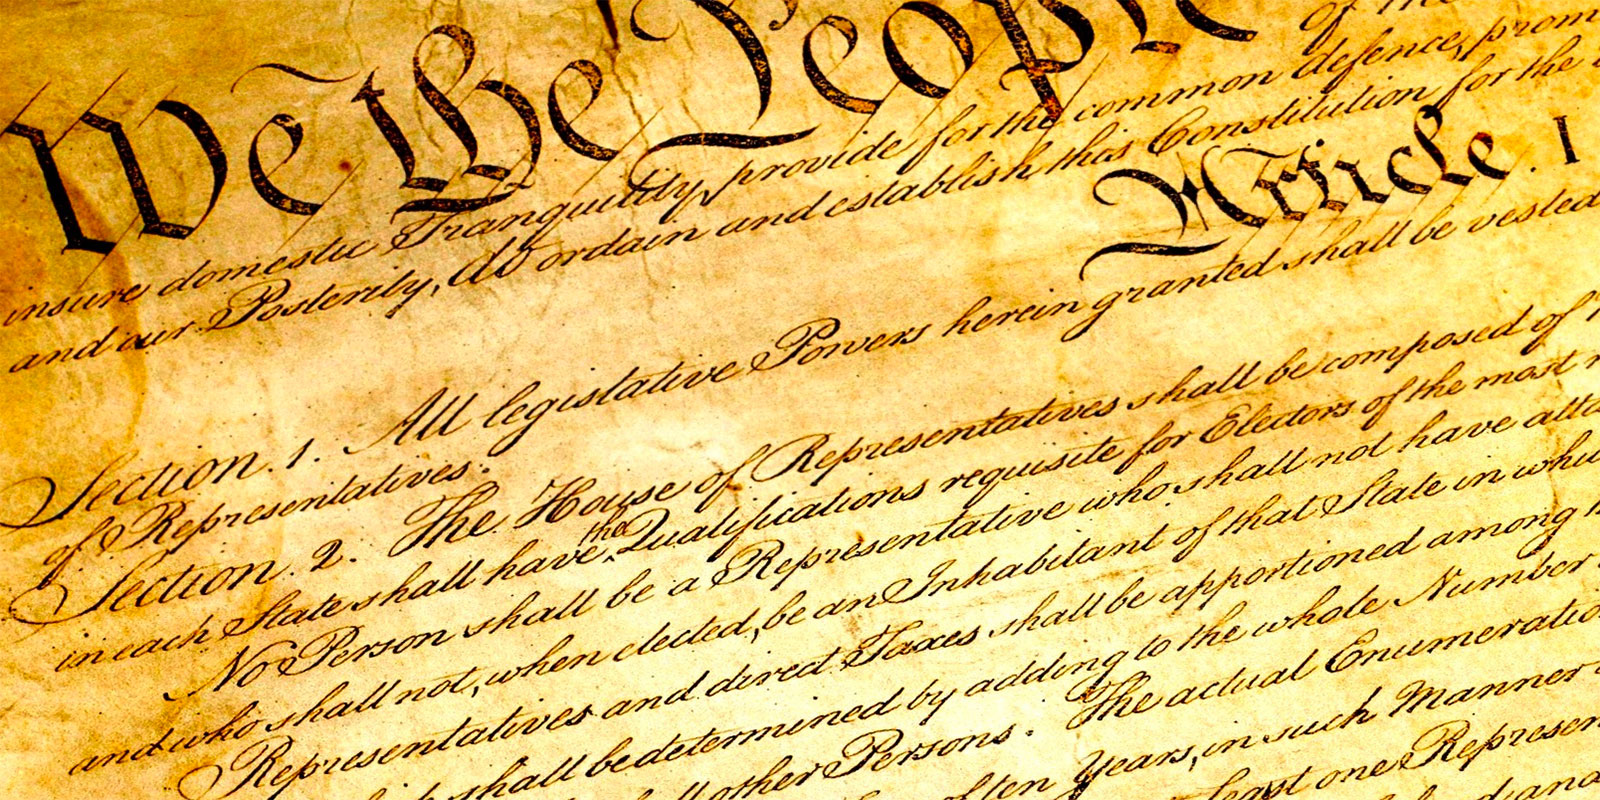 We the People
of the
insure domestic Tranquility, provide for the common defence, prom
and our Posterity, do ordain and establish this Constitution for the
Article. I
Section. 1. All legislative Powers herein granted shall be vested
of Representatives.
Section. 2. The House of Representatives shall be composed of
in each State shall have the Qualifications requisite for Electors of the most
No Person shall be a Representative who shall not have atta
and who shall not, when elected, be an Inhabitant of that State in whi
Representatives and direct Taxes shall be apportioned among
shall be determined by adding to the whole Number
other Persons. The actual Enumeratio
of ten Years, in such Manner
least one Represen